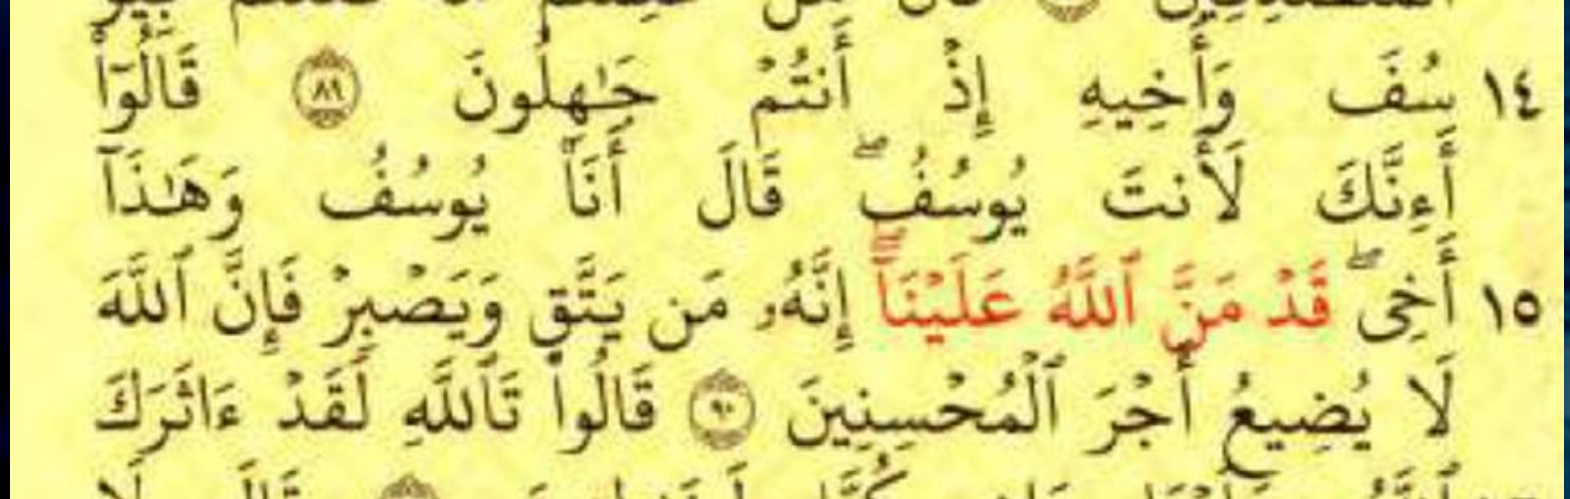 ١٤ سُفَ وَأَخِيهِ إِذْ أَنتُمْ جَٰهِلُونَ ٨٩ قَالُوٓا۟
أَءِنَّكَ لَأَنتَ يُوسُفُ ۖ قَالَ أَنَا۠ يُوسُفُ وَهَٰذَآ
١٥ أَخِى ۖ قَدْ مَنَّ ٱللَّهُ عَلَيْنَآ ۖ إِنَّهُۥ مَن يَتَّقِ وَيَصْبِرْ فَإِنَّ ٱللَّهَ
لَا يُضِيعُ أَجْرَ ٱلْمُحْسِنِينَ ٩٠ قَالُوا۟ تَٱللَّهِ لَقَدْ ءَاثَرَكَ